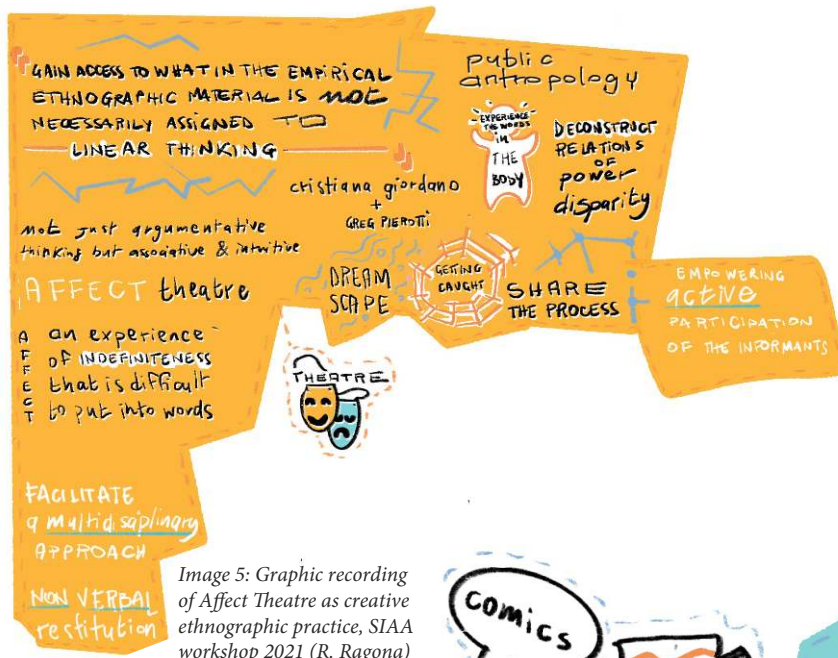 GAIN ACCESS TO WHAT IN THE EMPIRICAL
ETHNOGRAPHIC MATERIAL IS NOT
NECESSARILY ASSIGNED TO
LINEAR THINKING
cristiana giordano
+
GREG PIEROTTI
not just argumentative
thinking but associative & intuitive
AFFECT theatre
AFFECT
an experience
OF INDEFINITENESS
that is difficult
to put into words
FACILITATE
a multidisaplinary
APPROACH
NON VERBAL
restitution
public
antropology
EXPERIENCE
THE WORDS
in
THE
BODY
DECONSTRUCT
RELATIONS
OF
power
disparity
DREAM
SCAPE
GETTING
CAUGHT
SHARE
THE PROCESS
EMPOWERING
active
PARTICIPATION
OF THE INFORMANTS
THEATRE
Image 5: Graphic recording
of Affect Theatre as creative
ethnographic practice, SIAA
workshop 2021 (R. Ragona)
comics